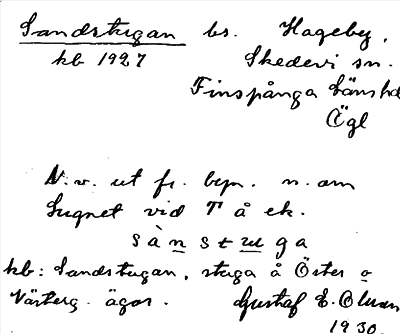 Sandstugan bs. Hageby,
kb 1927 Skedevi sn.
Finspånga Länshd
Ögl
N.v. ut fr. ben. n. om
Lugnet vid T å ek.
sànstuga
kb: Sandstugan, stuga å Öster o
Västerg. ägor. Gustaf E. Olsson
1930.